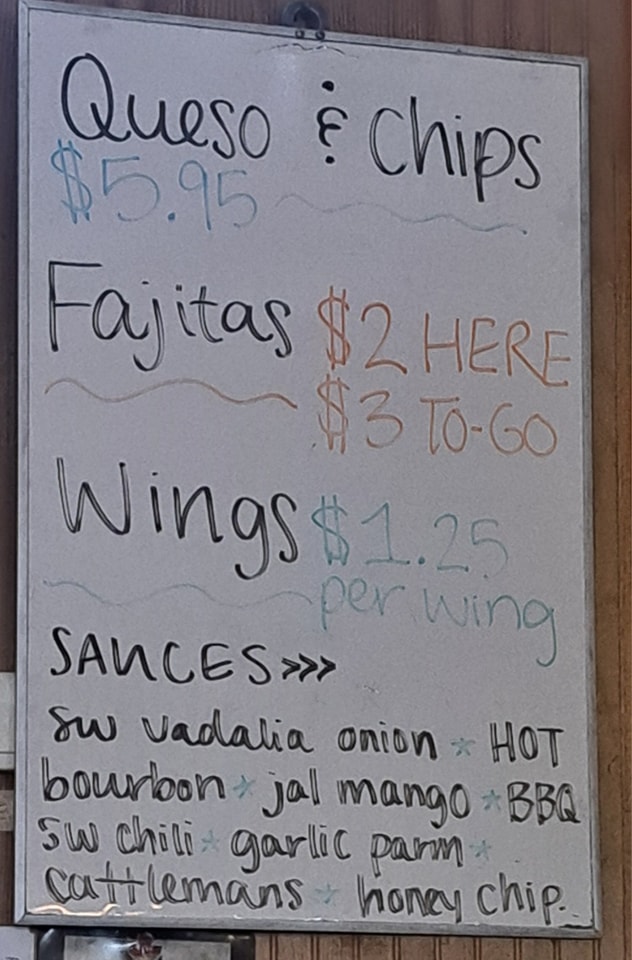 Queso & Chips
$5.95
Fajitas $2 HERE
$3 TO-GO
Wings $1.25
per wing
SAUCES >>>
SW vadalia onion * HOT
bourbon * jal mango * BBQ
SW chili * garlic parm *
cattlemans * honey chip.